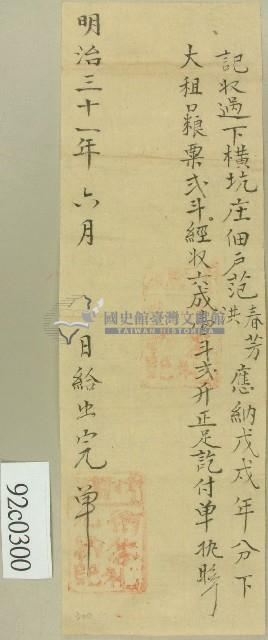 記收過下橫坑庄佃戶范春芳洪應納戊戌年分下
大租口粮粟弍斗。經收六成壹斗弍升正足訖付单执照
明治三十一年六月 日給出完单
國史館臺灣文獻館
TAIWAN HISTORICA
92c0300
300